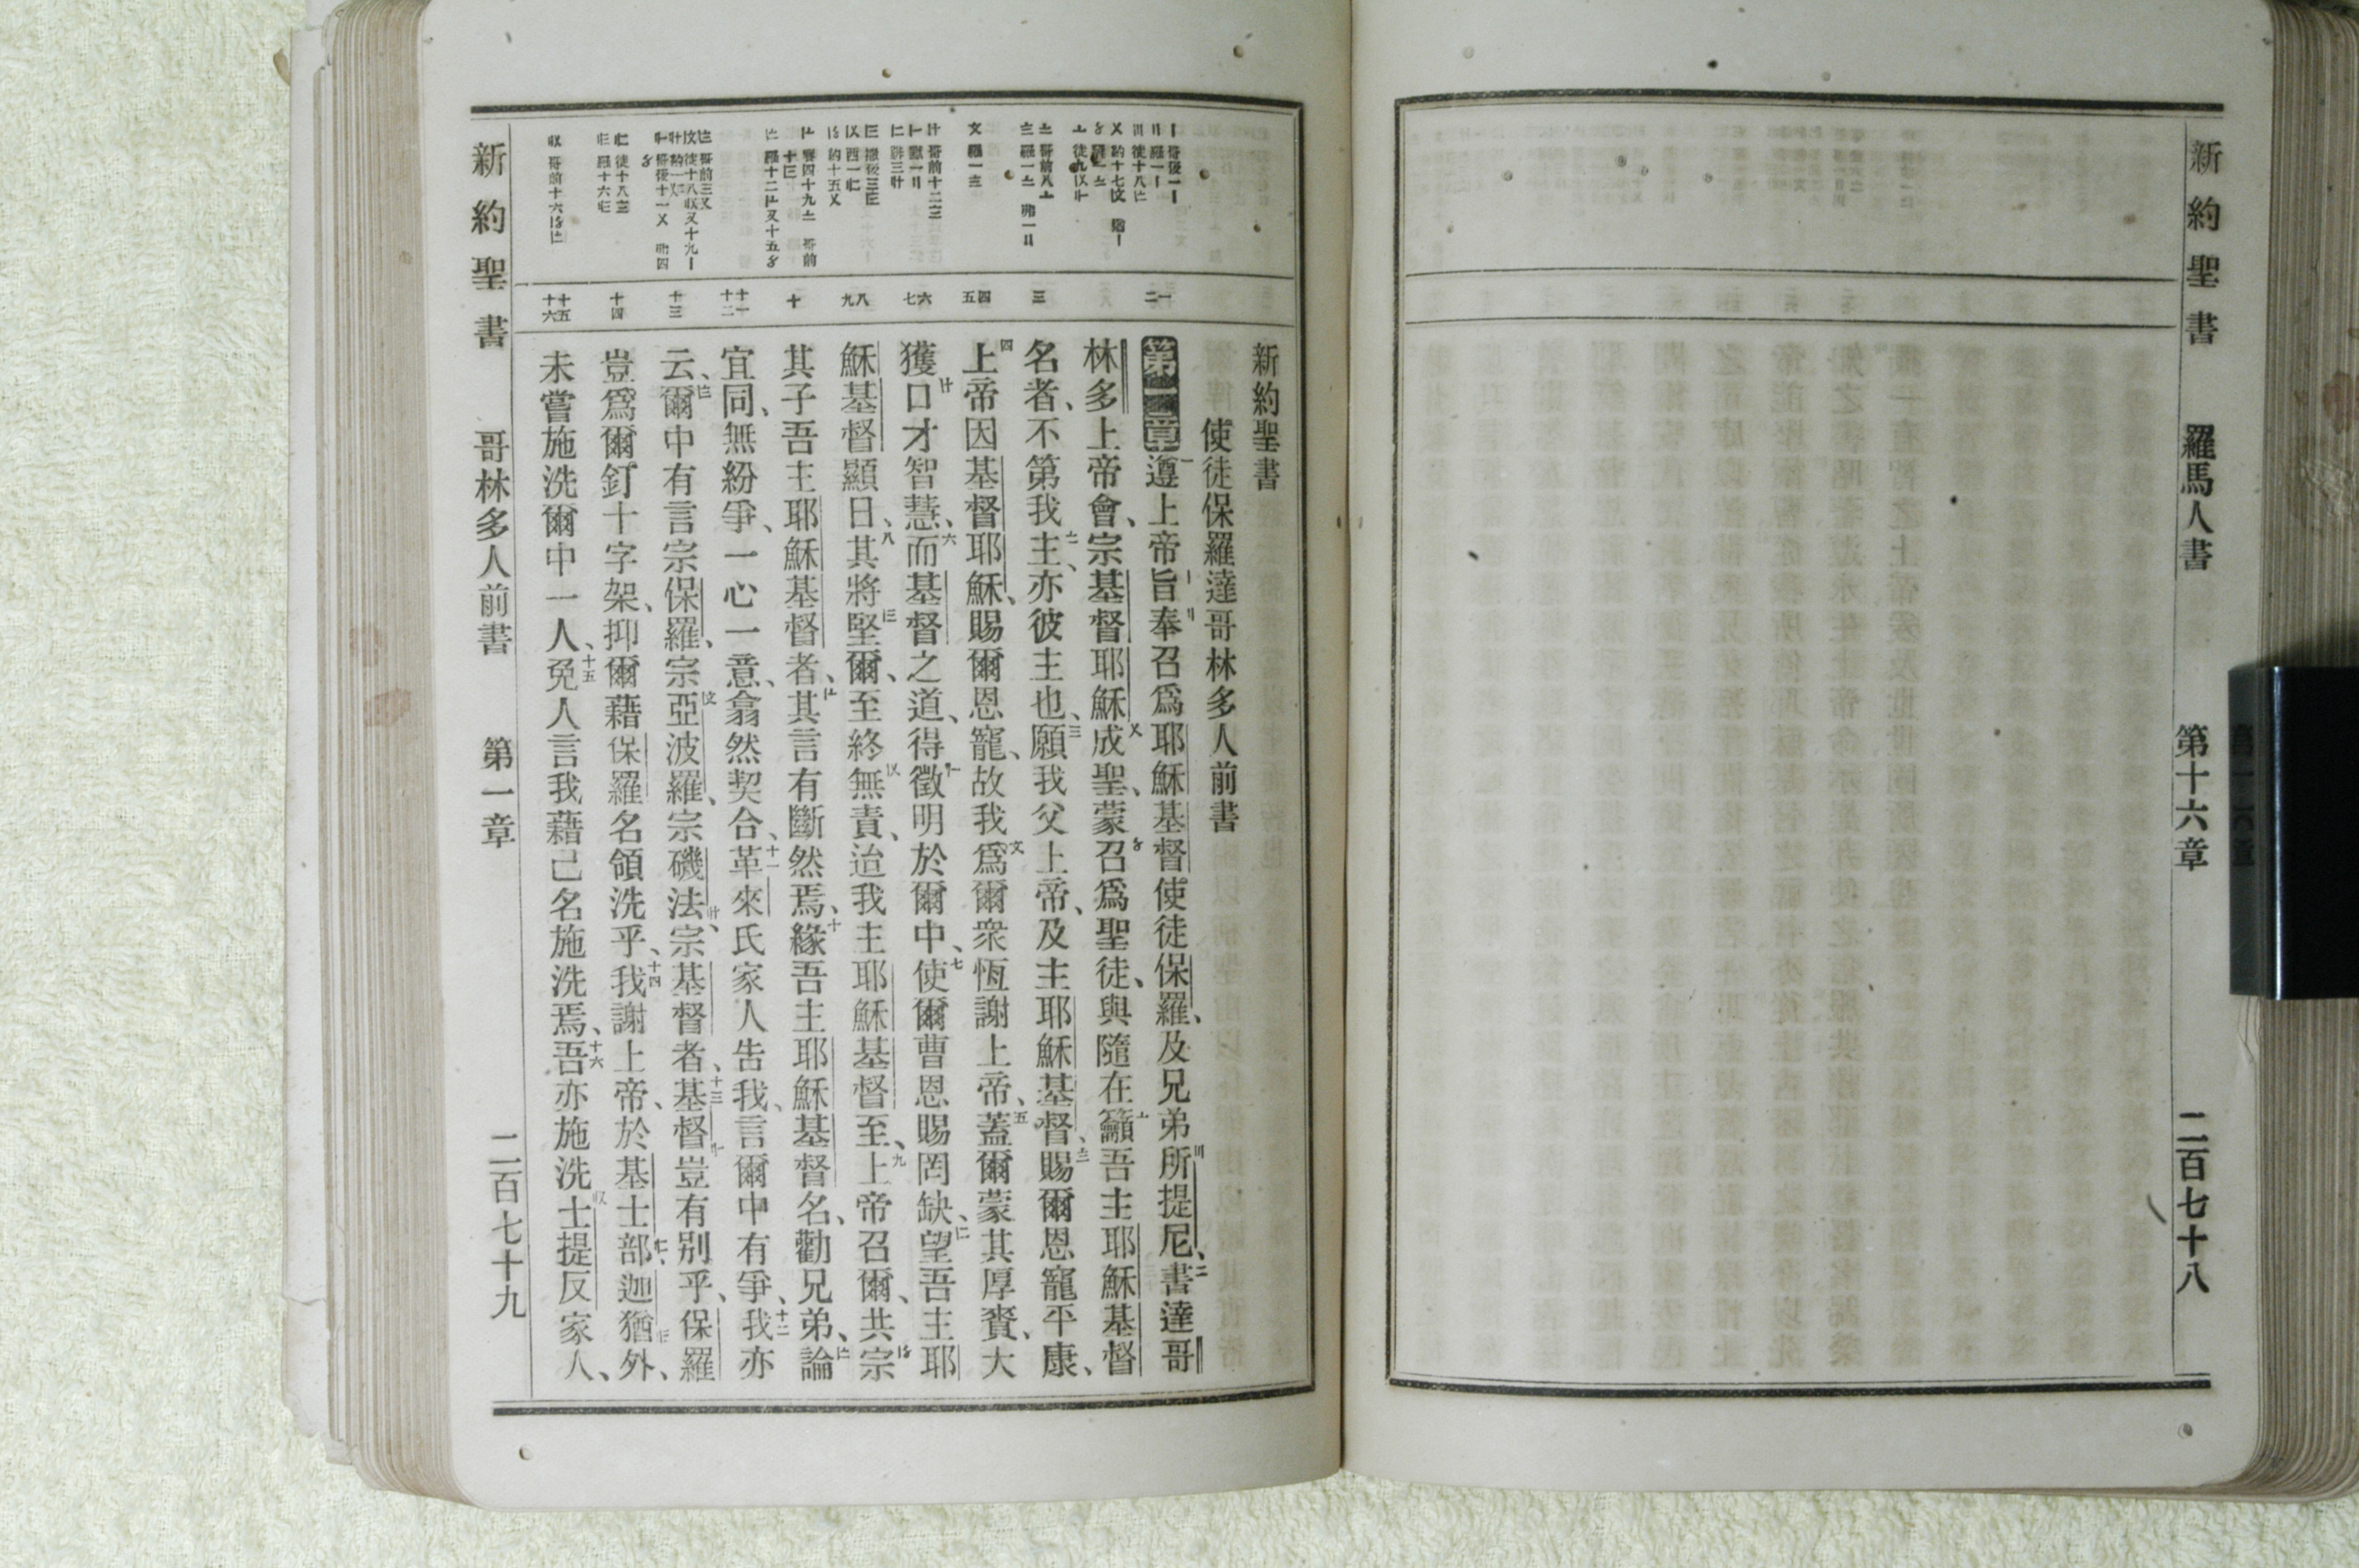 新約聖書
羅馬人書
第十六章
二百七十八
新約聖書
使徒保羅達哥林多人前書
一二
第一章遵上帝旨奉召爲耶穌基督使徒保羅、及兄弟所提尼、書達哥
林多上帝會、宗基督耶穌成聖、蒙召爲聖徒、與隨在籲吾主耶穌基督
三
名者、不第我主、亦彼主也、願我父上帝、及主耶穌基督、賜爾恩寵平康、
四五
上帝因基督耶穌、賜爾恩寵、故我爲爾衆恆謝上帝、蓋爾蒙其厚賚、大
六七
獲口才智慧、而基督之道、得徵明於爾中、使爾曹恩賜罔缺、望吾主耶
八九
穌基督顯日、其將堅爾、至終無責、迨我主耶穌基督至、上帝召爾、共宗
十
其子吾主耶穌基督者、其言有斷然焉、緣吾主耶穌基督名、勸兄弟、論
十一十二
宜同、無紛爭、一心一意、翕然契合、革來氏家人告我、言爾中有爭、我亦
十三
云、爾中有言宗保羅、宗亞波羅、宗磯法、宗基督者、基督豈有别乎、保羅
十四
豈爲爾釘十字架、抑爾藉保羅名領洗乎、我謝上帝、於基士部、迦猶外、
十五十六
未嘗施洗爾中一人、免人言我藉己名施洗焉、吾亦施洗士提反家人、
新約聖書
哥林多人前書
第一章
二百七十九